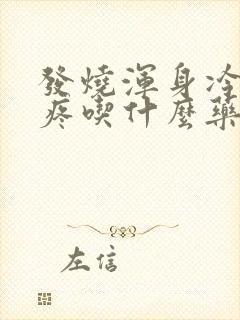 發燒渾身冷
疼喫什麼藥
左信